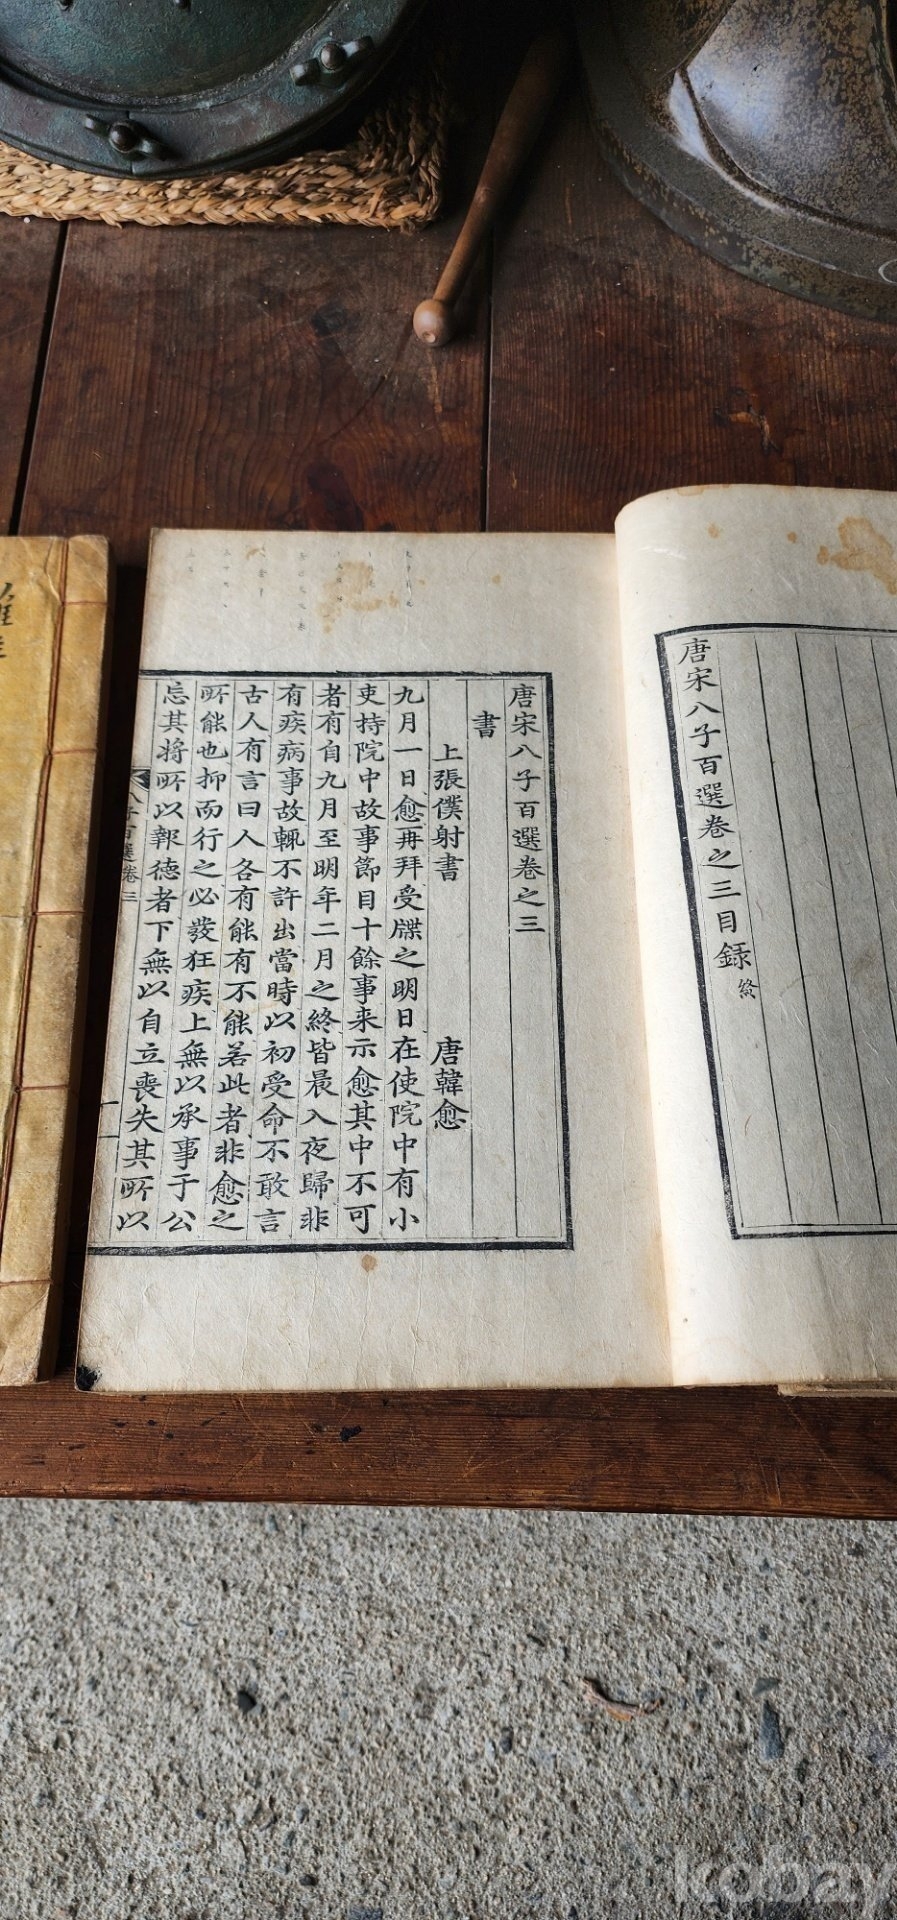 唐宋八子百選卷之三目錄 終
唐宋八子百選卷之三
書
上張僕射書 唐韓愈
九月一日愈再拜受牒之明日在使院中有小
吏持院中故事節目十餘事来示愈其中不可
者有自九月至明年二月之終皆晨入夜歸非
有疾病事故輒不許出當時以初受命不敢言
古人有言曰人各有能有不能若此者非愈之
所能也抑而行之必發狂疾上無以承事于公
忘其将所以報德者下無以自立喪失其所以
八子百選卷三
kobay